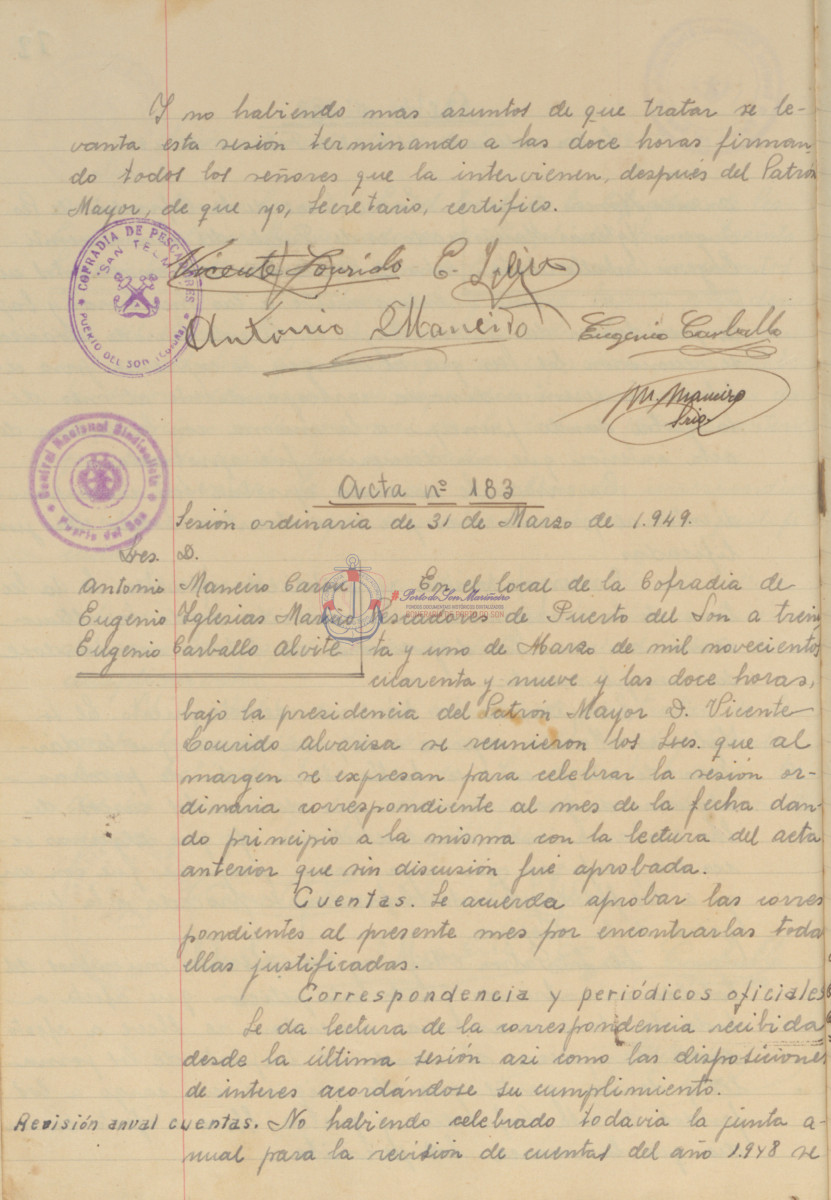 Y no habiendo mas asuntos de que tratar se le-
vanta esta sesión terminando a las doce horas firman-
do todos los señores que la intervienen, después del Patrón
Mayor, de que yo, Secretario, certifico.
COFRADIA DE PESCADORES
"SAN TELMO"
PUERTO DEL SON (CORUÑA)
Vicente Lourido E.
Antonio Maneiro Eugenio Carballo
M. Maneiro
Srio
Central Nacional Sindicalista
Puerto del Son
Acta nº 183
Sesión ordinaria de 31 de Marzo de 1.949.
Sres. D.
Antonio Maneiro Carou
Eugenio Yglesias Maneiro
Eugenio Carballo Alvite
En el local de la Cofradia de
Pescadores de Puerto del Son a trein
ta y uno de Marzo de mil novecientos
cuarenta y nueve y las doce horas,
bajo la presidencia del Patrón Mayor D. Vicente
Lourido Alvariza se reunieron los Sres. que al
margen se expresan para celebrar la sesión or-
dinaria correspondiente al mes de la fecha dan-
do principio a la misma con la lectura del acta
anterior que sin discusión fué aprobada.
Cuentas. Se acuerda aprobar las corres
pondientes al presente mes por encontrarlas toda
ellas justificadas.
Correspondencia y periódicos oficiales
Se da lectura de la correspondencia recibida
desde la última sesión asi como las disposiciones
de interes acordándose su cumplimiento.
Revisión anual cuentas. No habiendo celebrado todavia la junta a-
nual para la revisión de cuentas del año 1.948 se
Porto do Son Mariñeiro
FONDOS DOCUMENTAIS HISTÓRICOS DIXITALIZADOS